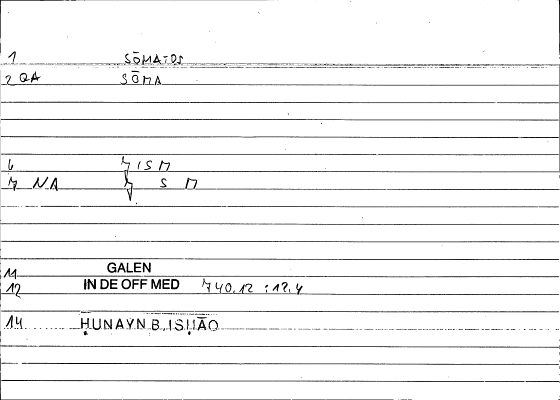 1 SŌMATOS
2 QA SŌMA
6 ISM
7 NA S M
11 GALEN
12 IN DE OFF MED 740.12 : 12.4
14 ḤUNAYN B. ISḤĀQ